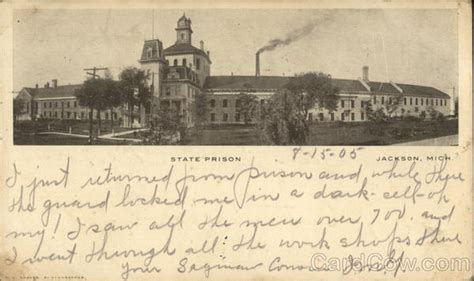 STATE PRISON
8-15-05
JACKSON, MICH.
I just returned from prison and, while there
the guard locked me in a dark-cell-oh
my! I saw all the men over 700. and
I went through all the work shops there
your Saginaw
CardCow.com